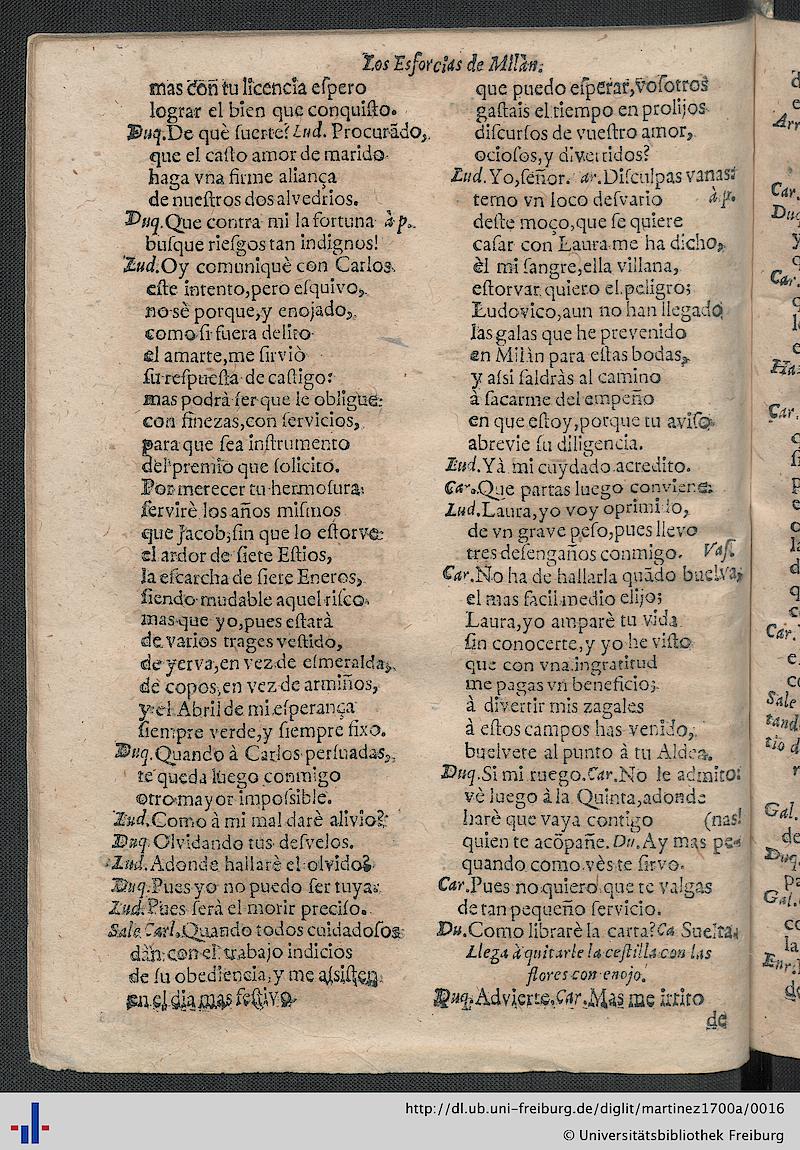 Los Esforcias de Milàn.
mas con tu licencia eſpero
lograr el bien que conquiſto.
Duq.De què ſuerte? Lud. Procurãdo,
que el caſto amor de marido
haga vna firme aliança
de nueſtros dos alvedrios.
Duq.Que contra mi la fortuna à p.
buſque rieſgos tan indignos!
Lud.Oy comuniquè con Carlos
eſte intento,pero eſquivo,
no sè porque,y enojado,
como ſi fuera delito
el amarte,me ſirviò
ſu reſpueſta de caſtigo:
mas podrà ſer que le obligue
con finezas,con ſervicios,
para que ſea inſtrumento
del premio que ſolicito.
Por merecer tu hermoſura
ſervirè los años miſmos
que Jacob,ſin que lo eſtorve
el ardor de ſiete Eſtios,
la eſcarcha de ſiete Eneros,
ſiendo mudable aquel riſco
mas que yo,pues eſtarà
de varios trages veſtido,
de yerva,en vez de eſmeralda,
de copos,en vez de armiños,
y el Abril de mi eſperança
ſiempre verde,y ſiempre fixo.
Duq.Quando à Carlos perſuadas,
te queda luego conmigo
otro mayor impoſsible.
Lud.Como à mi mal darè alivio?
Duq.Olvidando tus deſvelos.
Lud.Adonde hallarè el olvido?
Duq.Pues yo no puedo ſer tuya.
Lud.Pues ſerà el morir preciſo.
Sale Carl.Quando todos cuidadoſos
dàn con el trabajo indicios
de ſu obediencia,y me aſsiſten
en el dia mas feſtivo
que puedo eſperar,voſotros
gaſtais el tiempo en prolijos
diſcurſos de vueſtro amor,
ocioſos,y divertidos?
Lud.Yo,ſeñor. ar.Diſculpas vanas:
temo vn loco deſvario à p.
deſte moço,que ſe quiere
caſar con Laura me ha dicho,
èl mi ſangre,ella villana,
eſtorvar quiero el peligro;
Ludovico,aun no han llegado
las galas que he prevenido
en Milàn para eſtas bodas,
y aſsi ſaldràs al camino
à ſacarme del empeño
en que eſtoy,porque tu aviſo
abrevie ſu diligencia.
Lud.Yà mi cuydado acredito.
Car.Que partas luego conviene.
Lud.Laura,yo voy oprimido,
de vn grave peſo,pues llevo
tres deſengaños conmigo. Vaſ.
Car.No ha de hallarla quãdo buelva,
el mas facil medio elijo;
Laura,yo amparè tu vida
ſin conocerte,y yo he viſto
que con vna ingratitud
me pagas vn beneficio;
à divertir mis zagales
à eſtos campos has venido,
buelvete al punto à tu Aldea.
Duq.Si mi ruego.Car.No le admito:
vè luego à la Quinta,adonde
harè que vaya contigo (nas!
quien te acõpañe. Du.Ay mas pe-
quando como vès te ſirvo.
Car.Pues no quiero que te valgas
de tan pequeño ſervicio.
Du.Como librarè la carta?Ca Suelta.
Llega à quitarle la ceſtilla con las
flores con enojo.
Duq.Advierte.Car.Mas me irrito
de
Arr
Car.
Duq
Car.
Ha
Car.
Car.
Sale
tand
tio d
Gal.
de
Duq.
pa
Gal.
co
la
Enr.
de
http://dl.ub.uni-freiburg.de/diglit/martinez1700a/0016
© Universitätsbibliothek Freiburg